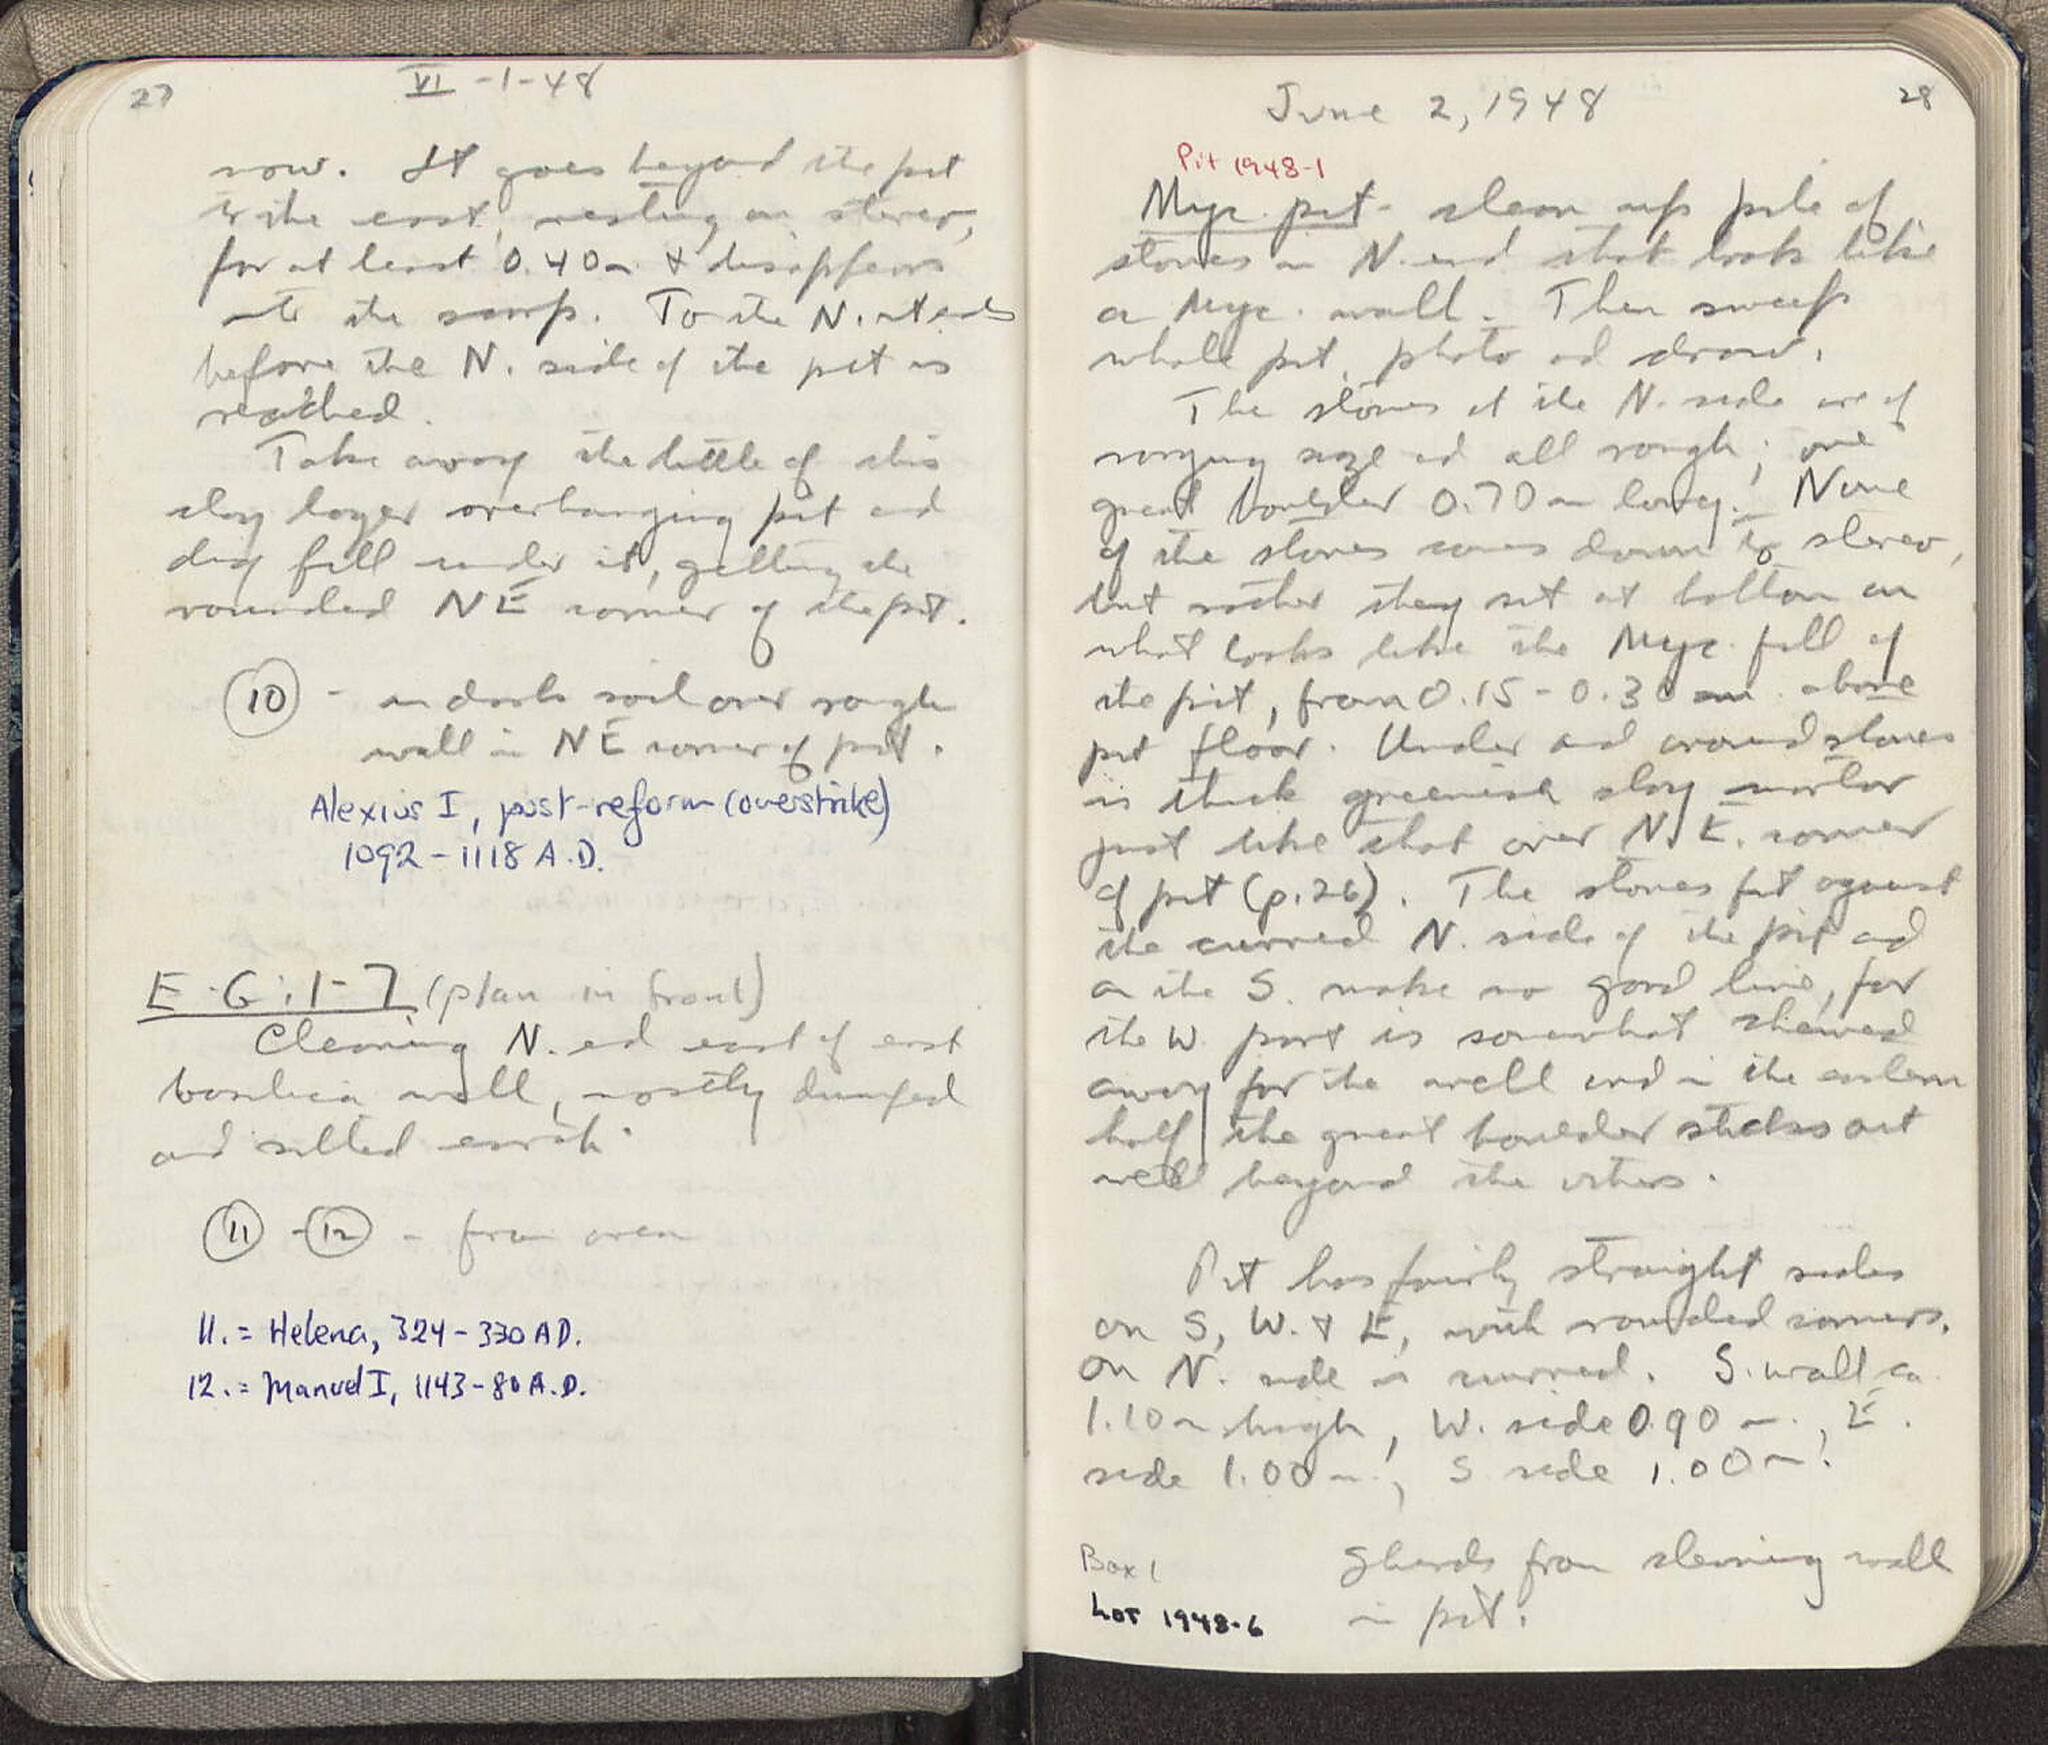 27
VI -1-48
now. It goes beyond the pit
to the east, resting on stereo,
for at least 0.40 m & disappears
into the scarp. To the N. it ends
before the N. side of the pit is
reached.
Take away the little of this
clay layer overhanging pit and
dig fill under it, getting the
rounded NE corner of the pit.
10 - in dark soil over rough
wall in NE corner of pit.
Alexius I, post-reform (overstrike)
1092-1118 A.D.
E-G:1-7 (plan in front)
Cleaning N. end east of east
basilica wall, mostly dumped
and silted earth.
11 - 12 - from area
11. = Helena, 324-330 AD.
12. = Manuel I, 1143-80 A.D.
28
June 2, 1948
Pit 1948-1
Myc. pit - clean up pile of
stones in N. end that looks like
a Myc. wall. Then sweep
whole pit, photo and draw.
The stones at the N. side are of
varying size and all rough; one
great boulder 0.70 m long. None
of the stones comes down to stereo,
but rather they sit at bottom on
what looks like the Myc. fill of
the pit, from 0.15-0.30 m above
pit floor. Under and around stones
is thick greenish clay mortar
just like that over N.E. corner
of pit (p.26). The stones fit against
the curved N. side of the pit and
on the S. make no good line, for
the W. part is somewhat shewed
away for the well and in the eastern
half the great boulder sticks out
well beyond the others.
Pit has fairly straight sides
on S, W. & E, with rounded corners.
On N. side is curved. S. wall ca.
1.10 m high, W. side 0.90 m., E.
side 1.00 m., S side 1.00 m.
Box 1
Lot 1948-6
Sherds from cleaning wall
in pit.